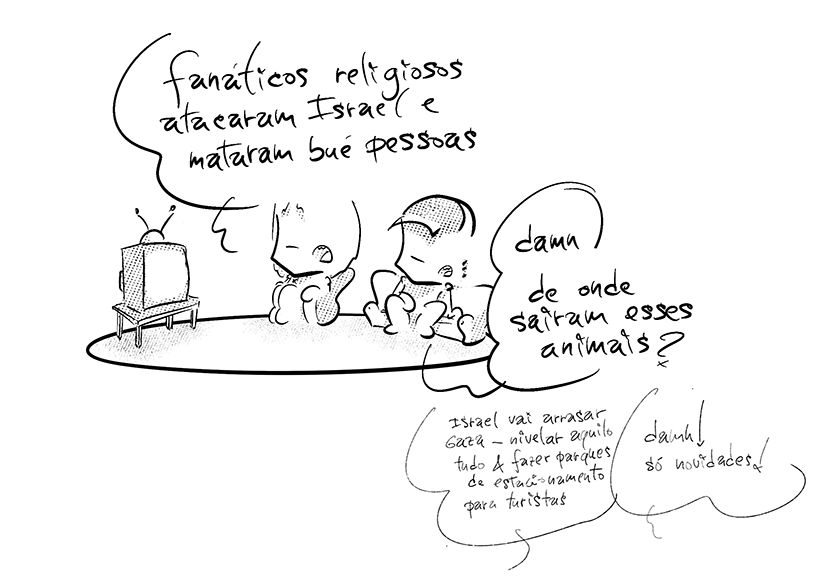 fanáticos religiosos
atacaram Israel e
mataram bué pessoas
damn
de onde
sairam esses
animais?
Israel vai arrasar
Gaza – nivelar aquilo
tudo & fazer parques
de estacionamento
para turistas
damn!
só novidades!